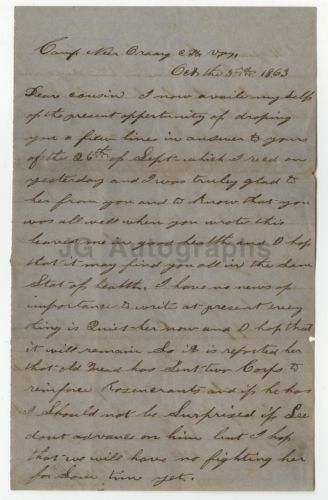 Camp Near Orang C.H. Va
Oct the 5th 1863
Dear cousin I now availe my self
of the present oppertunity of droping
you a few lines in answer to yours
of the 26th of Sept which I recd on
yesterday and I was truly glad to
her from you and to know that you
was all well when you wrote this
leaves me in good health and I hop
that it may find you all in the same
Stat of health. I have no news of
importance to writ at present every
thing is Quiet her now and I hop that
it will remain So it is reported her
that old Mead has Sent two Corps to
reinforce Rosencrants and if he has
I Should not be Surprised if Lee
dont advance on him but I hop
that we will have no fighting her
for Som time yet.
JG Autographs